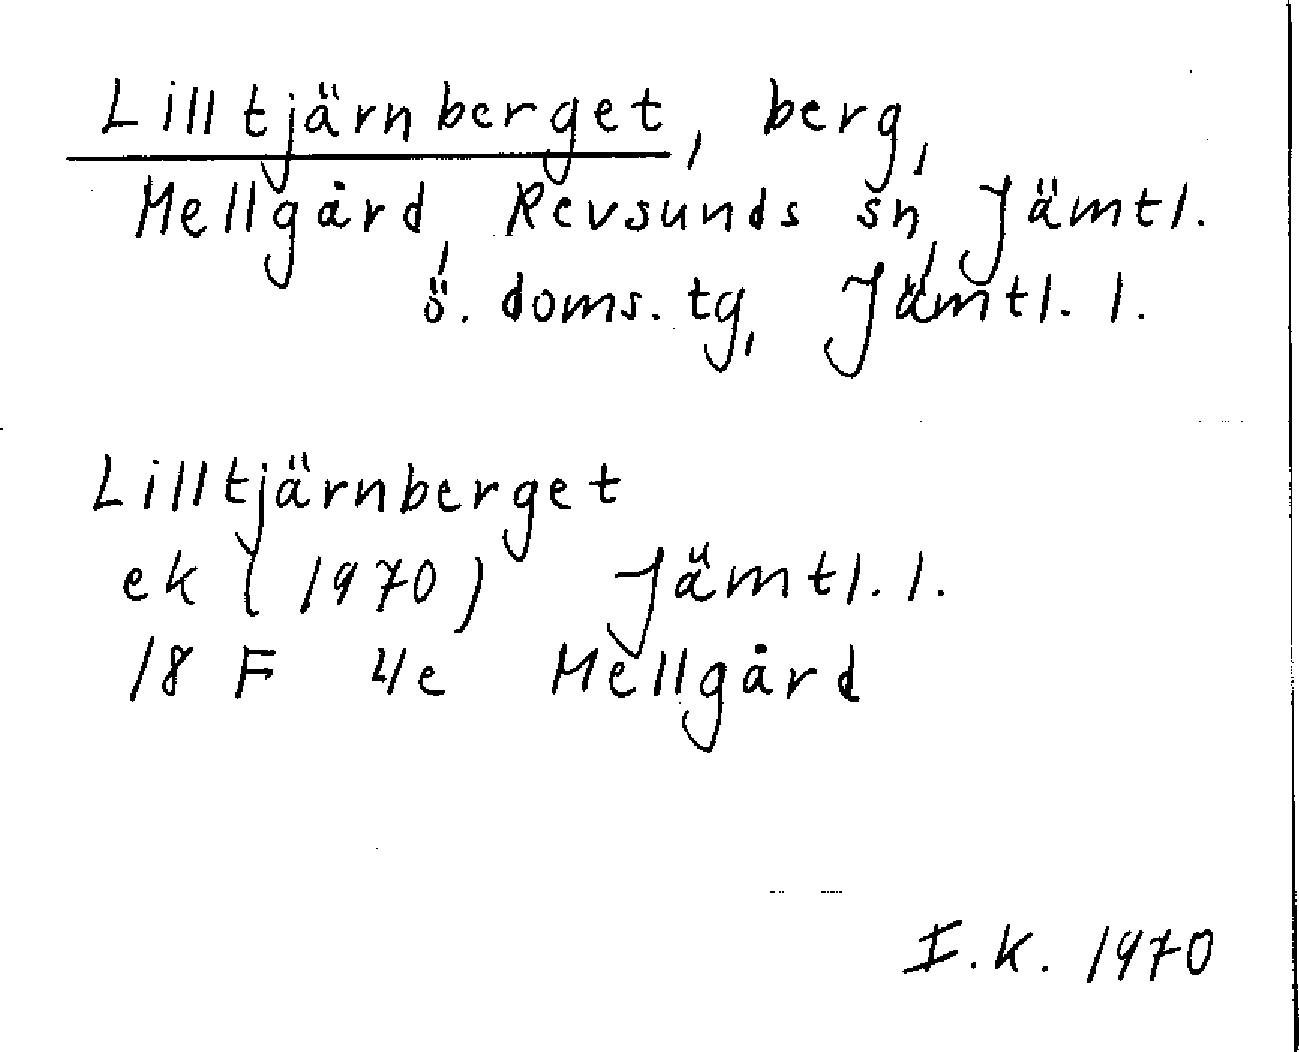 Lilltjärnberget, berg,
Mellgård, Revsunds sn, Jämtl.
ö. doms. tg, Jämtl. l.
Lilltjärnberget
ek (1970) Jämtl. l.
18 F 4e Mellgård
I.K. 1970